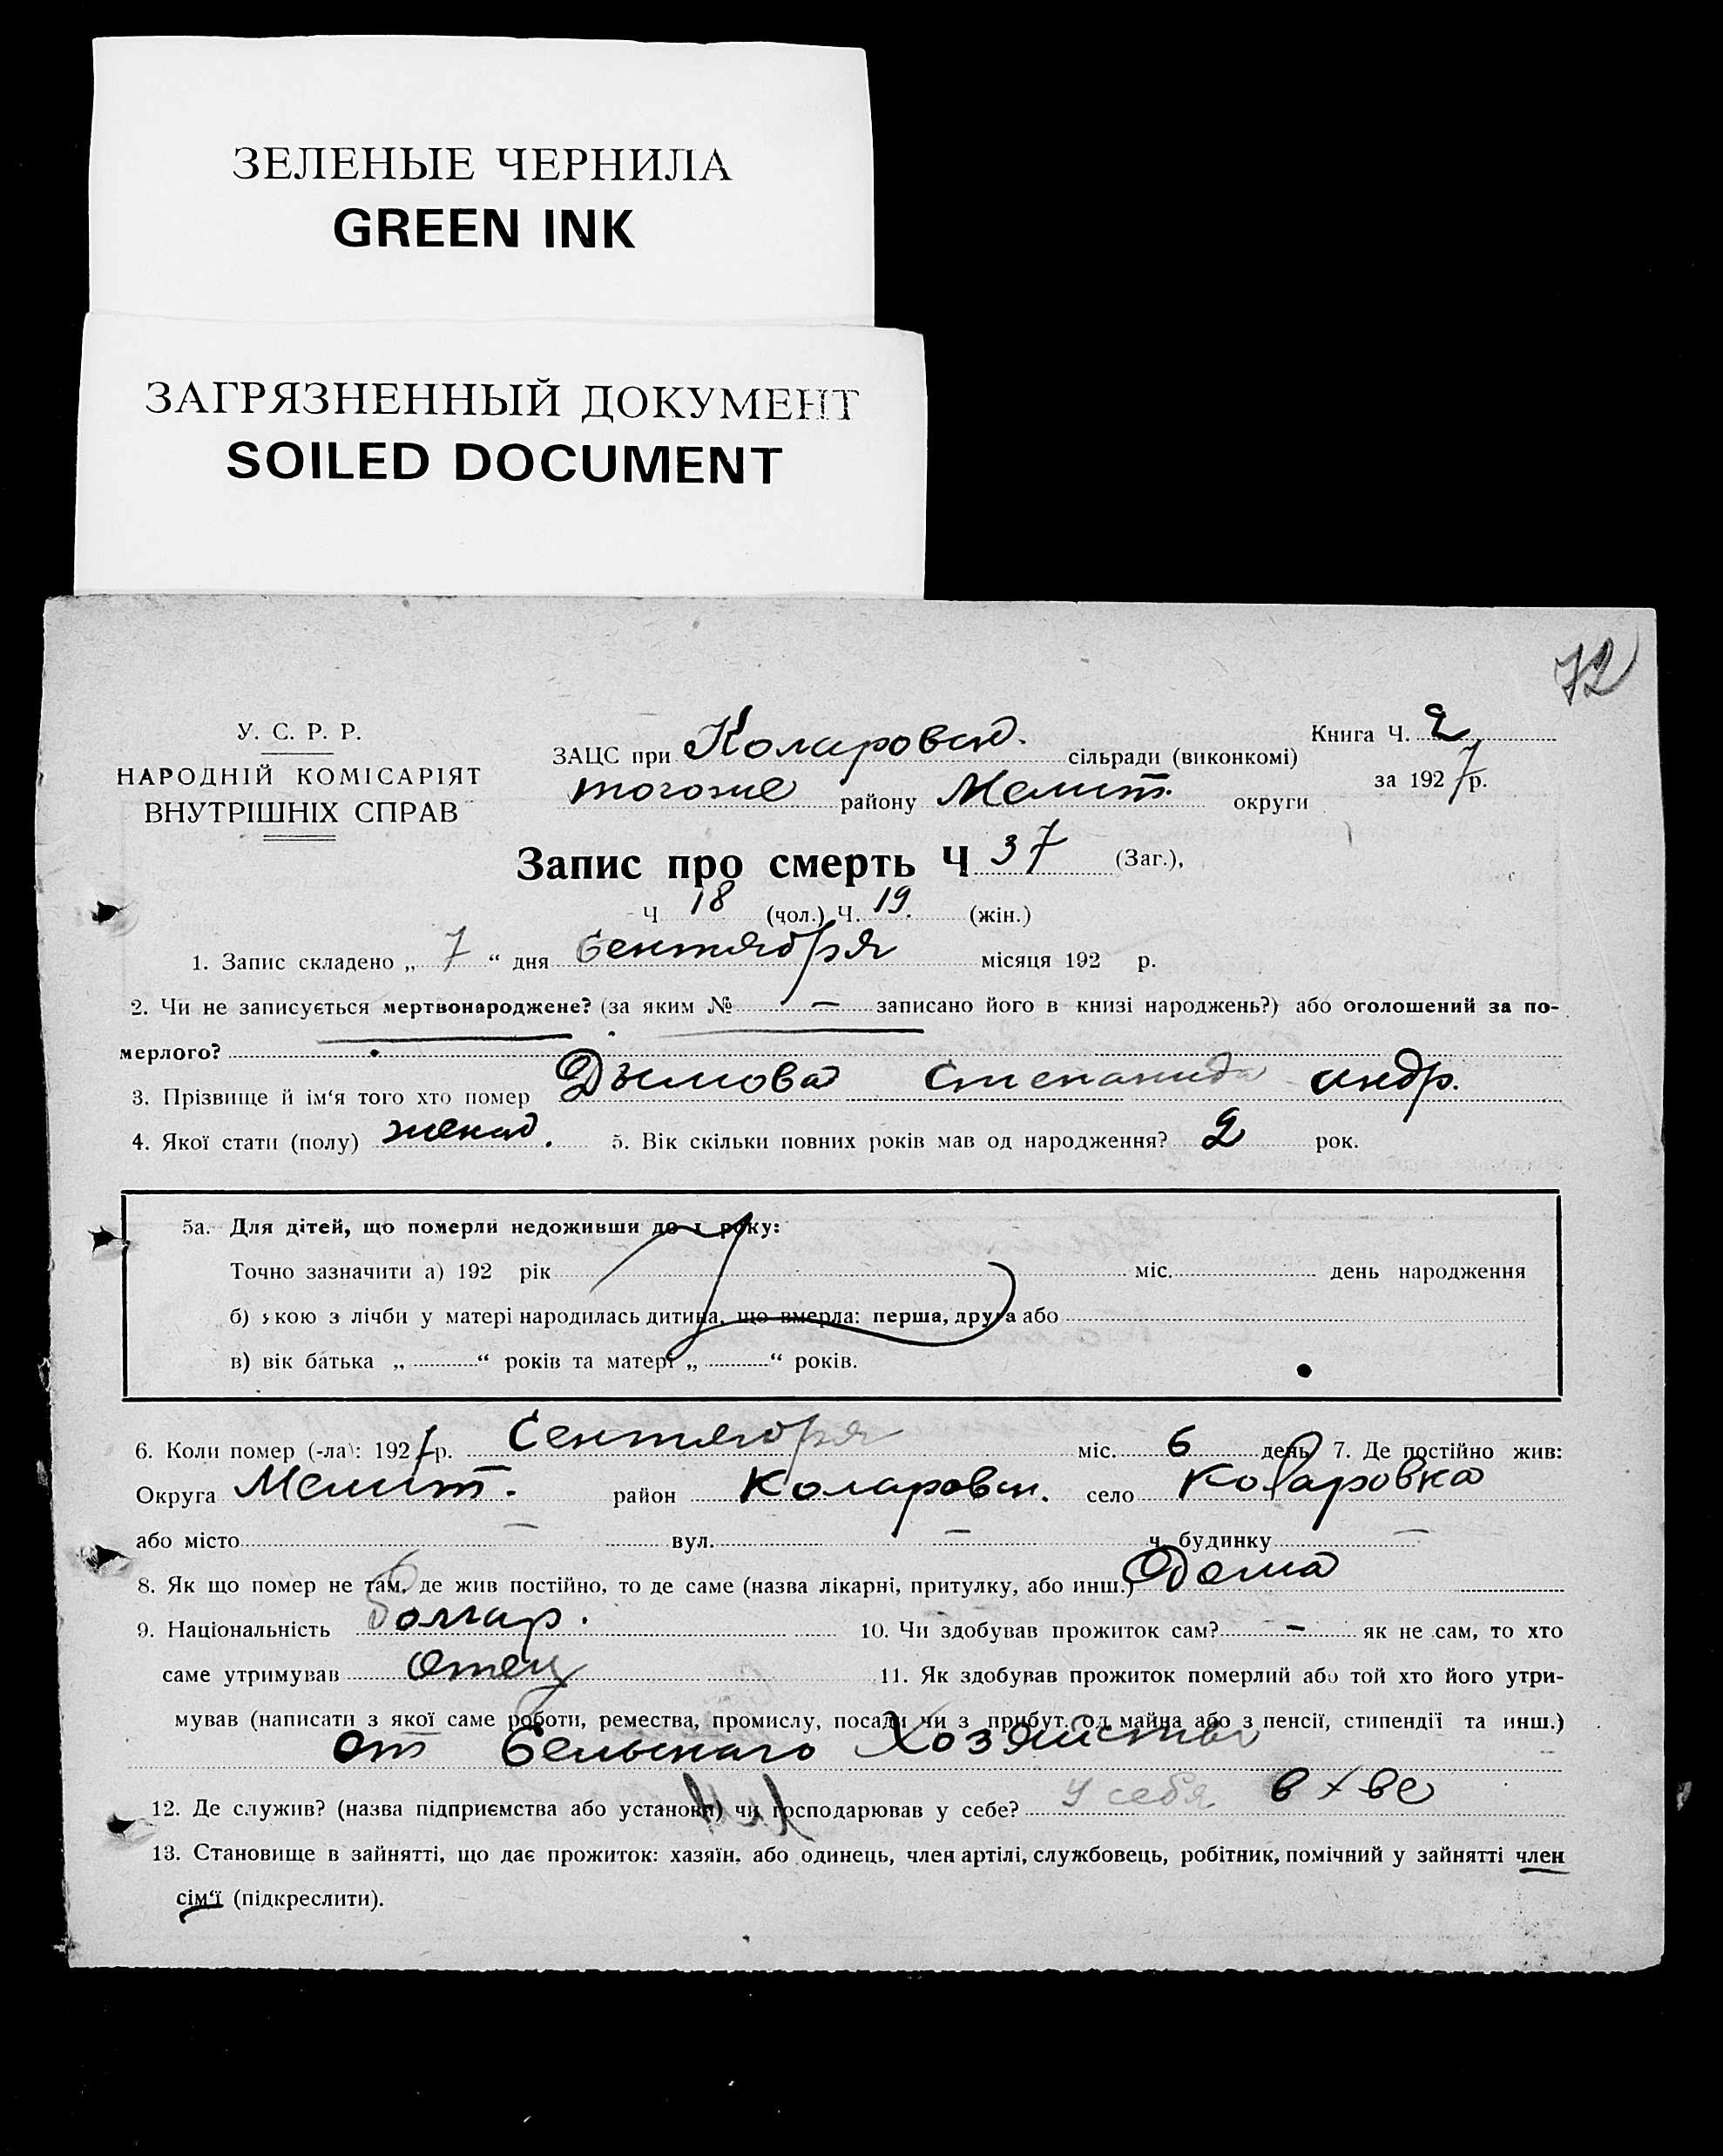 ЗЕЛЕНЫЕ ЧЕРНИЛА
GREEN INK
ЗАГРЯЗНЕННЫЙ ДОКУМЕНТ
SOILED DOCUMENT
72
У. С. Р. Р.
НАРОДНІЙ КОМІСАРІЯТ
ВНУТРІШНІХ СПРАВ
ЗАЦС при Коларовск. сільради (виконкомі)
тогоже району Мелит. округи
Книга Ч. 2
за 1927 р.
Запис про смерть Ч 37 (Заг.),
Ч 18 (чол.) Ч. 19. (жін.)
1. Запис складено „ 7 “ дня Сентября місяця 192 р.
2. Чи не записується мертвонароджене? (за яким № — записано його в книзі народжень?) або оголошений за по-
мерлого?
3. Прізвище й ім‘я того хто помер Дымова Степанида Андр.
4. Якої стати (полу) женск. 5. Вік скільки повних років мав од народження? 2 рок.
5а. Для дітей, що померли недоживши до 1 року:
Точно зазначити а) 192 рік міс. день народження
б) якою з лічби у матері народилась дитина, що вмерла: перша, друга або
в) вік батька „ “ років та матері „ “ років.
6. Коли помер (-ла): 1927 р. Сентября міс. 6 день 7. Де постійно жив:
Округа Мелит. район Коларовск. село Коларовка
або місто — вул. — ч. будинку —
8. Як що помер не там, де жив постійно, то де саме (назва лікарні, притулку, або инш.) Дома
9. Національність болгар. 10. Чи здобував прожиток сам? — як не сам, то хто
саме утримував Отец 11. Як здобував прожиток померлий або той хто його утри-
мував (написати з якої саме роботи, ремества, промислу, посади чи з прибут. од майна або з пенсії, стипендії та инш.)
От Сельскаго Хозяйства
12. Де служив? (назва підприємства або установи) чи господарював у себе? У себя в х-ве
13. Становище в зайнятті, що дає прожиток: хазяїн, або одинець, член артілі, службовець, робітник, помічний у зайнятті член
сім‘ї (підкреслити).